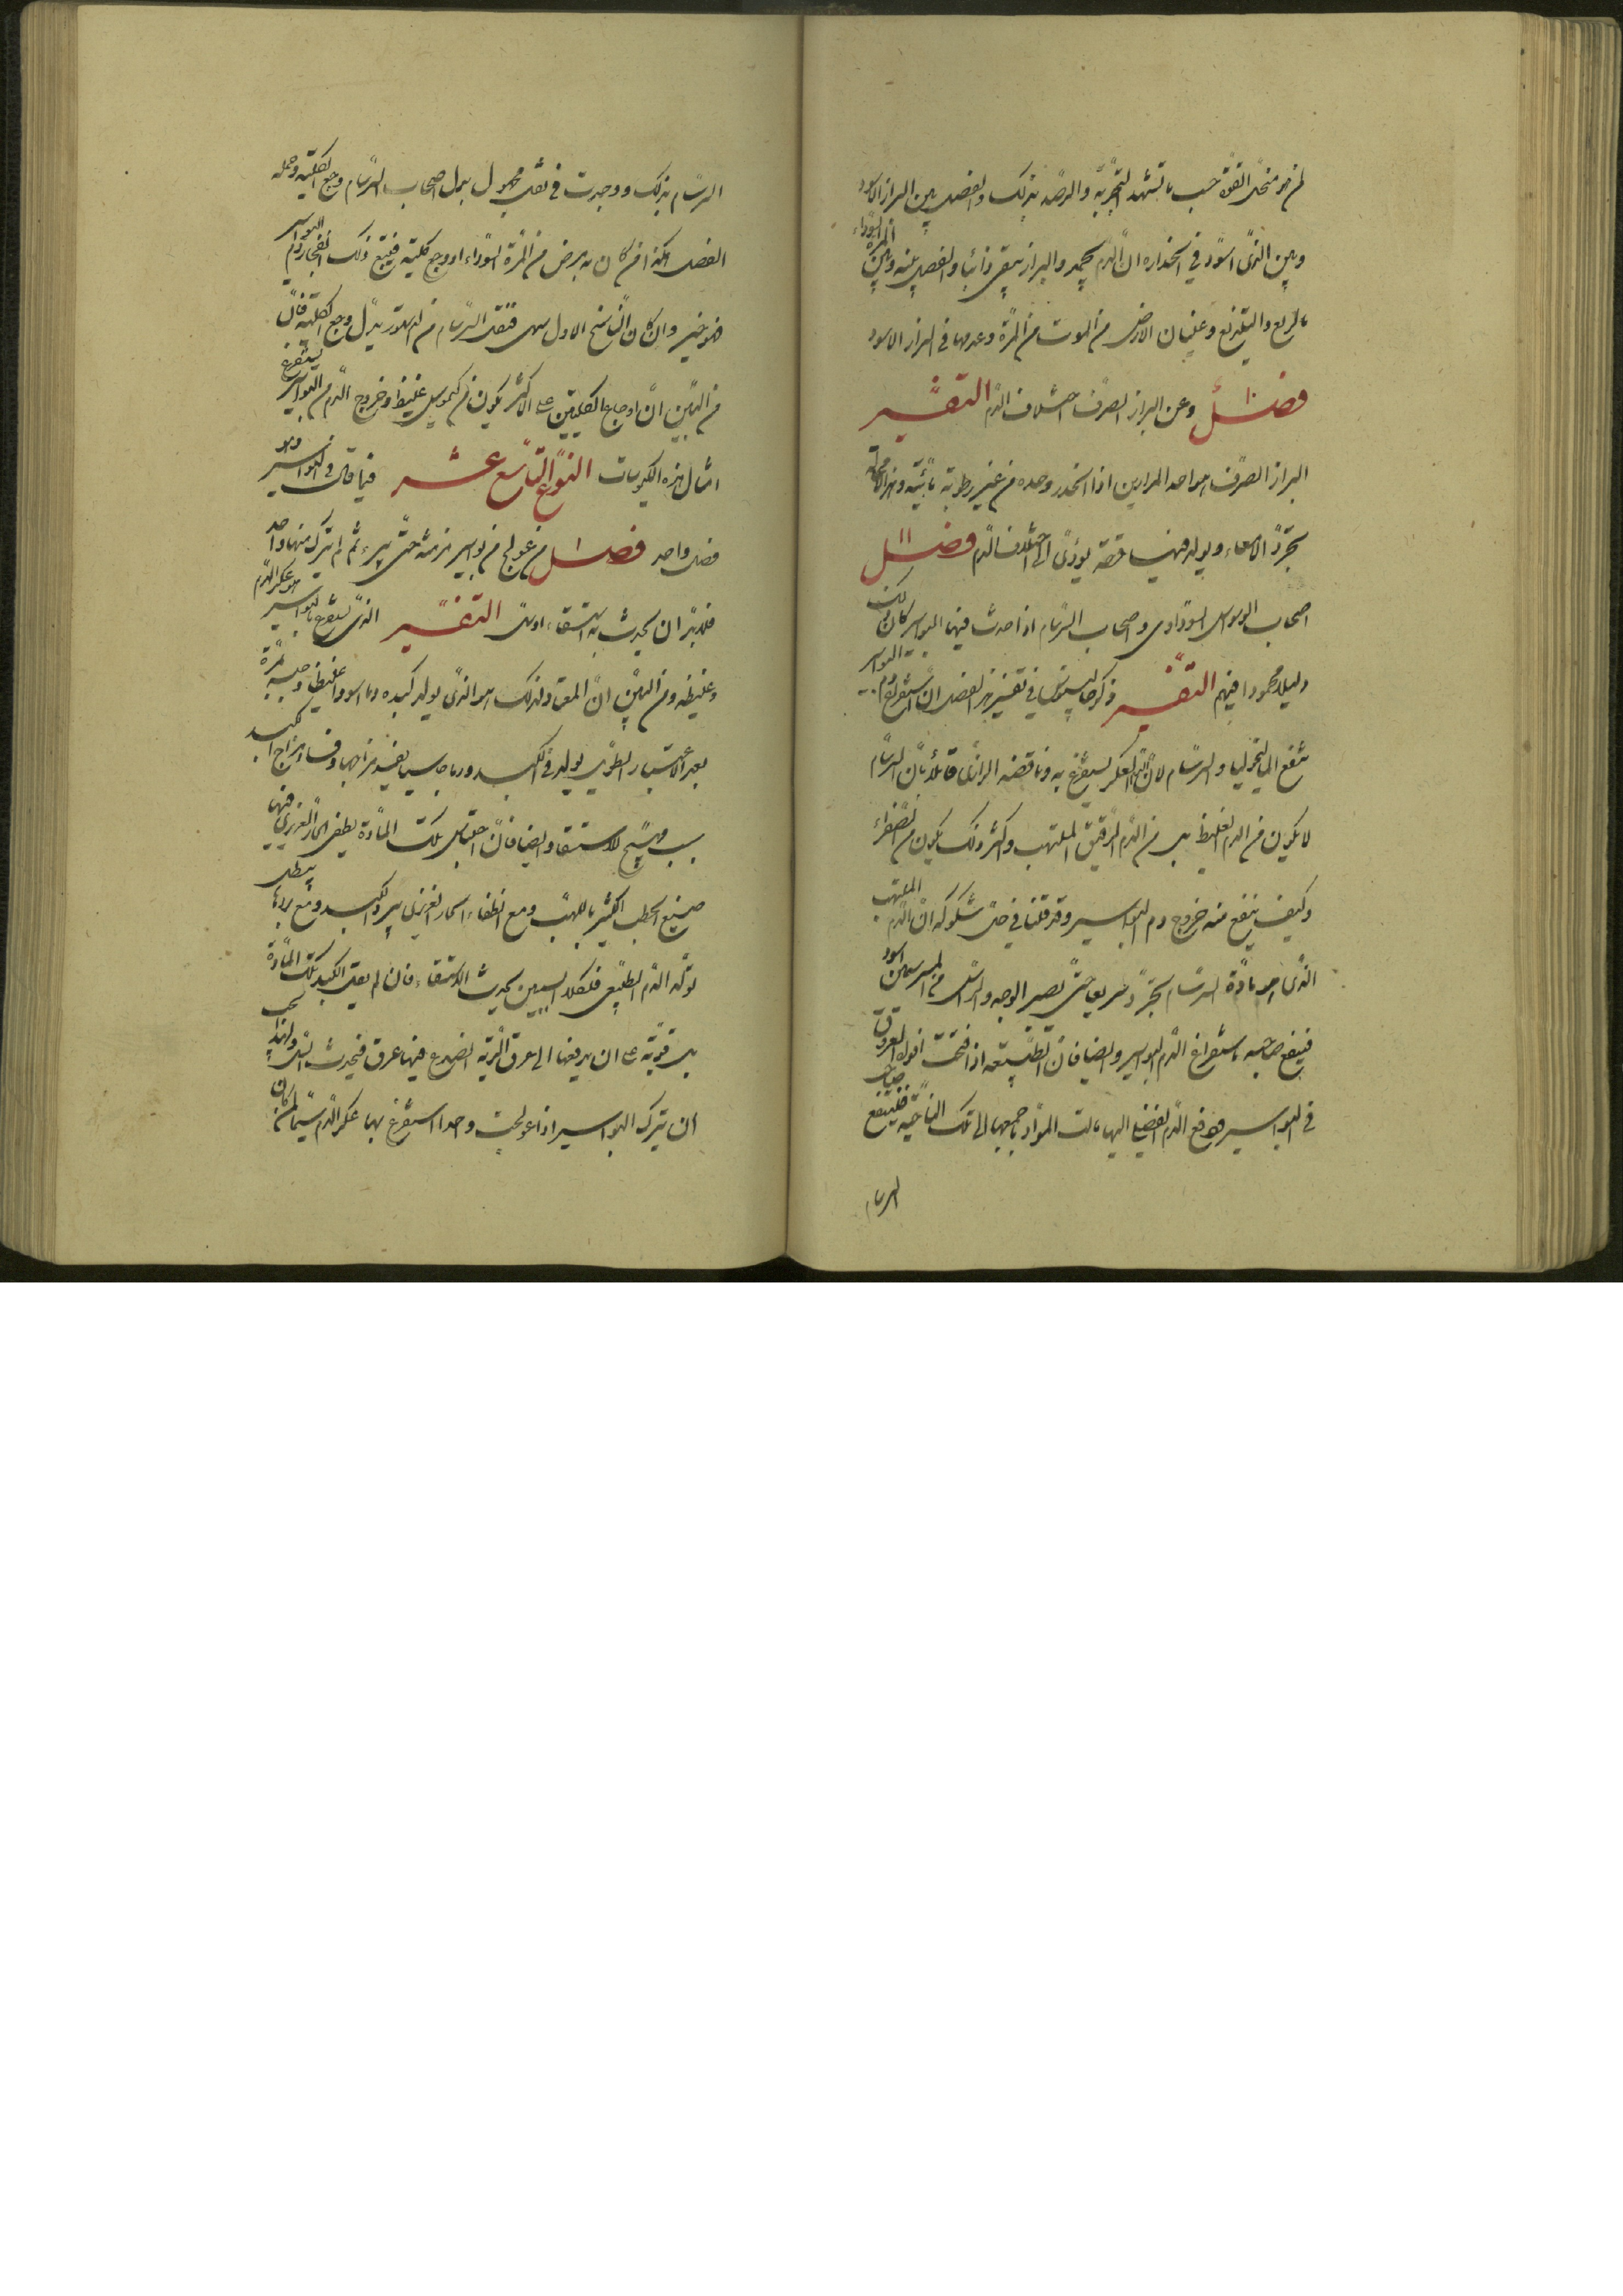 لمن هو منحل القوة حسب ما تشهد التجربة والرصد بذلك والفصل بين البراز الاسود
وبين الذى اسود في انحداره ان الدم يجمد والبراز يبقى ذائبا والفصل بينه وبين المرة السوداء
بالريع وغليان الارض من الموت من المرة وعدمها في البراز الاسود
فصل ١٠ وعن البراز الصرف اختلاف الدم التفسير
البراز الصرف هو احد المرارين اذا انحدر وحده من غير رطوبة مائية وهذا لا محالة
يجرد الامعاء ويولد فيها قرحة يؤدى الى اختلاف الدم فصل ١١
اصحاب الوسواس السوداوى واصحاب السرسام اذا حدث فيهم البواسير كان ذلك
دليلا محمودا فيهم التفسير ذكر جالينوس في تفسير هذا الفصل ان استفراغ دم البواسير
ينفع الماليخوليا والسرسام لان الدم العكر يستفرغ به وناقضه الرازى قائلا بان السرسام
لا يكون من الدم الغليظ بل من الدم الرقيق الملتهب واكثر ذلك يكون من الصفراء
وكيف ينفع منه خروج دم البواسير وقد قلنا في حل شكوكه ان الدم الملتهب
الذى هو مادة السرسام يحترد سريعا حتى يصير الوجه والراس من المبرسمين اسود
فينفع صاحبه باستفراغ الدم البواسير وايضا فان الطبيعة اذا فتحت افواه العروق
في البواسير ودفع الدم الفضلي اليها مالت المواد باجمعها الى تلك الناحية فينتفع صاحب
السرسام
السرسام بذلك ووجدت في نقل مجهول بدل اصحاب السرسام وجع الكلية وحمله
الفصل هكذا من كان به مرض من المرة السوداء او وجع كلية فيتبع ذلك انفجار دم البواسير
فهو خير وان كان الناسخ الاول سهى فنقل السرسام من السطور بدل وجع الكلية فان
من البين ان اوجاع الكليتين على الاكثر يكون من كيموس غليظ وخروج الدم من البواسير يستفرغ
امثال هذه الكيموسات النوع التاسع عشر فيما قال في البواسير وهو
فصل واحد فصل ١ من عولج من بواسير مزمنة حتى يبرء ثم لم يترك منها واحد
فلا بد ان يحدث به استسقاء او سل التفسير الذى يستفرغ بالبواسير هو عكر الدم
وغليظه ومن البين ان المعتاد لذلك هو الذى يولد كبده دما سودا غليظا وحبسه
بعد الاعتبار الطويل يولد في الكبد ورما جاسيا يفسد مزاجها وفساد مزاج الكبد
سبب مهيج للاستسقاء وايضا فان احتباس تلك المادة يطفى الحار الغريزى فيها
صنيع الحطب الكثير باللهب ومع انطفاء الحار الغريزى يبرد الكبد ومع بردها يبطل
تولد الدم الطبيعى فلكلا السببين يحدث الاستسقاء فان لم يقبل الكبد تلك المادة
بل قويت على ان يدفعها الى عروق الرية انصدع فيها عرق فيحدث السل ولهذا يجب
ان يترك البواسير اذا عولجت واحدا استفرغ بها عكر الدم سيما لمن كان